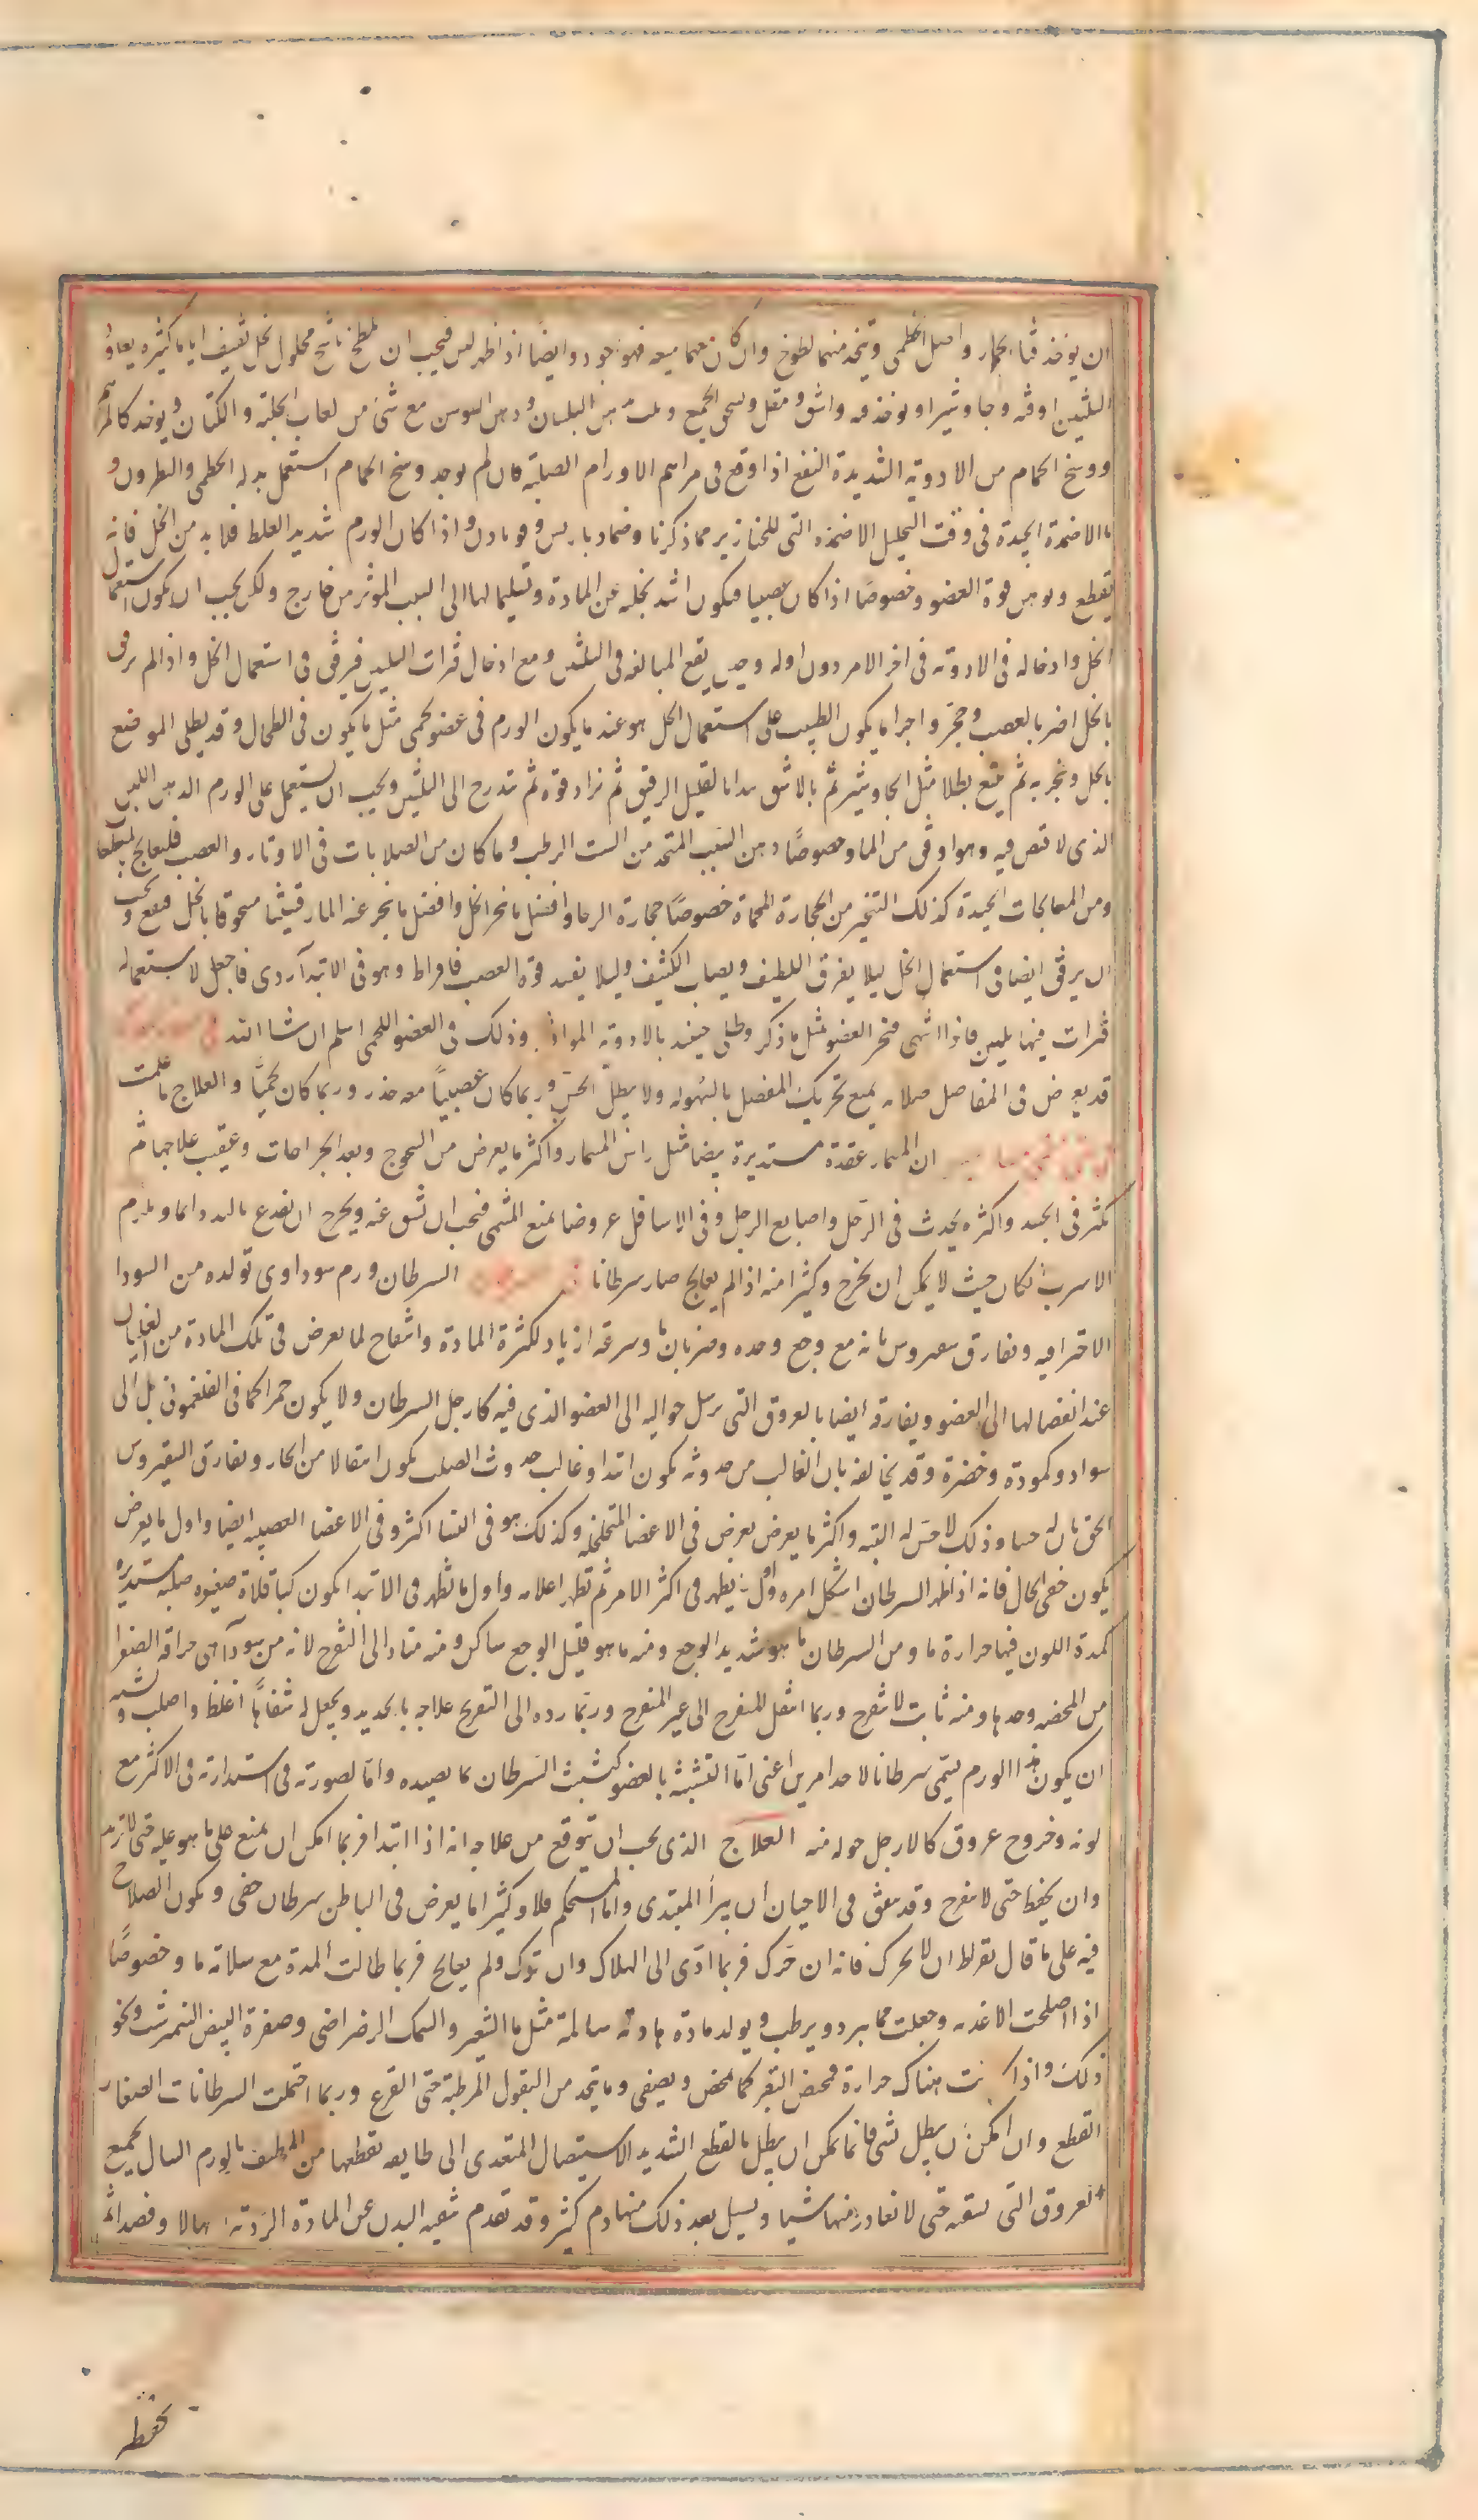 ان يوخذ قثا الحمار واصل الخطمى ويتخذ منهما لطوخ وان كان معهما ميعه فهو اجود وايضا اذا ظهر لين فيجب ان يلطخ باشج محلول بخل ثقيف اياما كثيره يعاود
التليين اوقه وجاوشير او يوخذ قنه واشق ومقل ويسحق الجميع ويلت بدهن البلسان ودهن السوسن مع شئ من لعاب الحلبة والكتان ويوخذ كالمرهم
ووسخ الحمام من الادوية الشديدة النفع اذا وقع فى مراهم الاورام الصلبة فان لم يوجد وسخ الحمام استعمل بدله الخطمى والنطرون و
ما الاضمدة الجيدة فى وقت التحليل الاضمده التى للخنازير مما ذكرنا وضماد باريس وقومادن واذا كان الورم شديد الغلظ فلا بد من الخل فانه
يقطع ويوهن قوة العضو وخصوصا اذا كان عصبيا فيكون اشد تخليه عن المادة وتسليما لها الى السبب الموثر من خارج ولكن يجب ان يكون استعمال
الخل وادخاله فى الادوية فى اخر الامر دون اوله وحين يقع المبالغه فى التليين ومع ادخال فترات التليين فيرفق فى استعمال الخل واذا لم يرفق
بالخل اضر بالعصب وحجر واجرا ما يكون الطبيب على استعمال الخل هو عند ما يكون الورم فى عضو لحمى مثل ما يكون فى الطحال وقد يطلى الموضع
بالخل ويبخر به ثم يتبع بطلا مثل الجاوشير ثم بالاشق يبدا بالقليل الرقيق ثم يزاد قوة ثم يتدرج الى التليين ويجب ان يستعمل على الورم الدهن اللين
الذى لا قبض فيه وهو اوفق من الما وخصوصًا دهن الشبت المتخذ من الشبت الرطب وما كان من الصلابات فى الاوتار والعصب فليعالج بالمقطعات
ومن المعالجات الجيدة كذلك التبخير من الحجارة المحماة خصوصًا حجارة الرحا وافضل ما بخر الخل وافضل ما يبخر عنه المارقيشا مسحوقا بالخل فينفع ويجب
ان يرفق ايضا فى استعمال الخل ليلا يفرق اللطيف ويصلب الكثيف وليلا يفسد قوة العصب فافراط وهو فى الابتدآ ردى فاجعل لاستعماله
فترات فيها يلين فاذا انتهى فبخر العضو بمثل ما ذكر وطلى حينئذ بالادوية الموادّ وذلك فى العضو اللحمى اسلم ان شا الله
قد يعرض فى المفاصل صلابه يمنع تحريك المفصل بالسهوله ولا يبطل الحس وربما كان عصبيًا معه خدر وربما كان لحميًا والعلاج ما علمت
ان المسمار عقدة مستديرة بيضا مثل راس المسمار واكثر ما يعرض من السحوج وبعد الجراحات وعقيب علاجها ثم
تكثر فى الجسد واكثره يحدث فى الرجل واصابع الرجل وفى الاسافل عروضا يمنع المشى فيجب ان يشق عنه ويخرج او يفدغ باليد دايما ويلزم
الاسرب ان كان حيث لا يمكن ان يخرج وكثيرا منه اذا لم يعالج صار سرطانا السرطان ورم سوداوى تولده من السودا
الاحتراقيه ويفارق سقيروس بانه مع وجع وحده وضربان ما وسرعه ازدياد لكثرة المادة وانتفاخ لما يعرض فى تلك المادة من الغليان
عند انفصالها الى العضو ويفارقه ايضا بالعروق التى يرسل حواليه الى العضو الذى فيه كارجل السرطان ولا يكون حمرا كما فى الفلغمونى بل الى
سواد وكمودة وخضرة وقد يخالفه بان الغالب من حدوثه يكون ابتدا وغالب حدوث الصلب يكون انتقالا من الحار ويفارق السقيروس
الحق بان له حسا وذلك لا حس له البته واكثر ما يعرض يعرض فى الاعضا المتخلخله وكذلك هو فى النسا اكثر وفى الاعضا العصبيه ايضا واول ما يعرض
يكون خفى الحال فانه اذا ظهر السرطان اشكل امره واول ما يظهر فى اكثر الامر ثم تظهر اعلامه واول ما تظهر فى الابتدا يكون كباقلاة صغيره صلبه مستديره
كمدة اللون فيها حرارة ما ومن السرطان ما هو شديد الوجع ومنه ما هو قليل الوجع ساكن ومنه متاد الى التقرح لانه من سودآ هى حراقة الصفرا
من المحضه وحدها ومنه ثابت لا يتقرح وربما انتقل المتقرح الى غير المتقرح وربما رده الى التقريح علاجه بالحديد ويجعل له شفاهًا اغلظ واصلب ويشبه
ان يكون هذا الورم يسمى سرطانا لاحد امرين اعنى اما لتشبثه بالعضو كتشبث السرطان بما يصيده واما لصورته فى استدارته فى الاكثر مع
لونه وخروج عروق كالارجل حوله منه العلاج الذى يجب ان يتوقع من علاجه انه اذا ابتدا فربما امكن ان يمنع على ما هو عليه حتى لا يزيد
وان يحفظ حتى لا يتقرح وقد يتفق فى الاحيان ان يبرأ المبتدى واما المستحكم فلا وكثيرا ما يعرض فى الباطن سرطان خفى ويكون الصلاح
فيه على ما قال بقراط ان لا يحرك فانه ان حَرك فربما ادّى الى الهلاك وان ترك ولم يعالج فربما طالت المدة مع سلامة ما وخصوصًا
اذا اصلحت الاغذيه وجعلت مما يبرد ويرطب ويولد مادة هادئة سالمة مثل ما الشعير والسمك الرضراضى وصفرة البيض النيمرشت ونحو
ذلك واذا كانت هناك حرارة فمخيض البقر كما يمخض ويصفى وما يتخذ من البقول المرطبة حتى القرع وربما احتملت السرطانات الصغار
القطع وان امكن ان يبطل بشى فانما يمكن ان يبطل بالقطع الشديد الاستيصال المتعدى الى طايفه يقطعها من المطيف بالورم السال لجميع
العروق التى تسقيه حتى لا يغادر منها شيا ويسيل بعد ذلك منها دم كثير وقد تقدم بتنقيه البدن عن المادة الرديه اسهالا وفصدا ثم
يحفظه